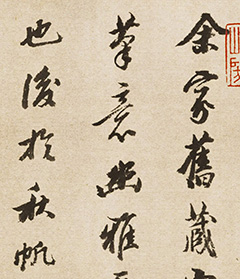 余家舊藏
筆意幽雅
也後於秋帆